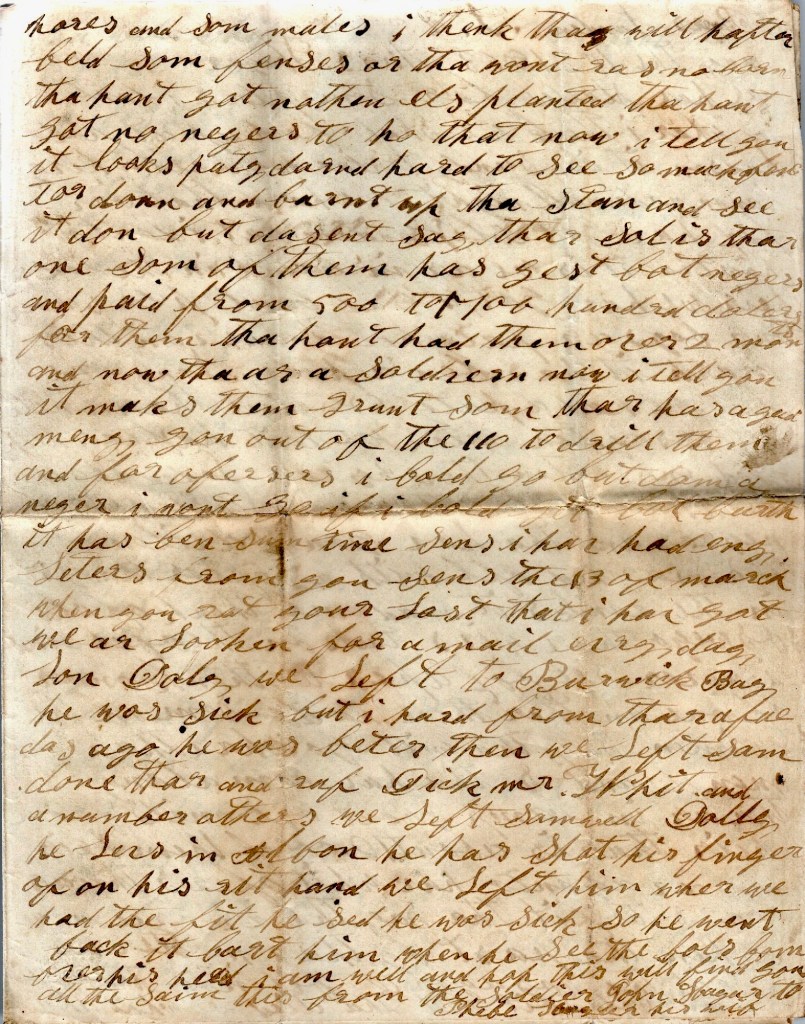 hores and som mules i thenk thay will hafto
beld som fenses or tha wont ras no corn
tha hant got nothen els planted tha hant
got no negers to ho that now i tell you
it looks paty darnd hard to see so much
tor down and barnt up tha stan and see
it don but dasent say thar sol is thar
one som of them has gest bot negers
and paid from 500 to 1700 hundrd dolers
for them tha hant had them over 2 mon
and now tha ar a soldiern now i tell you
it maks them grunt som thar has aged
meny gon out of the 110 to drill them
and for ofersers i cold go but dam a
neger i wont go if i cold get bak
it has ben sum time sens i hav had eny
leters from you sens the 13 of march
when you rat your last that i hav got
we ar looken for a mail evry day
Lon Daly we left to Burwick Bay
he was sick but i hard from thar a fae
das ago he was beter then we left sam
done thar and raf Dick mr. Whit and
a number athers we left Samuell Dolly
he levs in Albon he has shot his finger
of on his rit hand we left him wher we
had the fit he sed he was sick so he went
back it bart him when he see the bols bom
over his head i am well and hop this will find you
all the saim this from the soldier John Seagar to
Phebe Seagar his wife